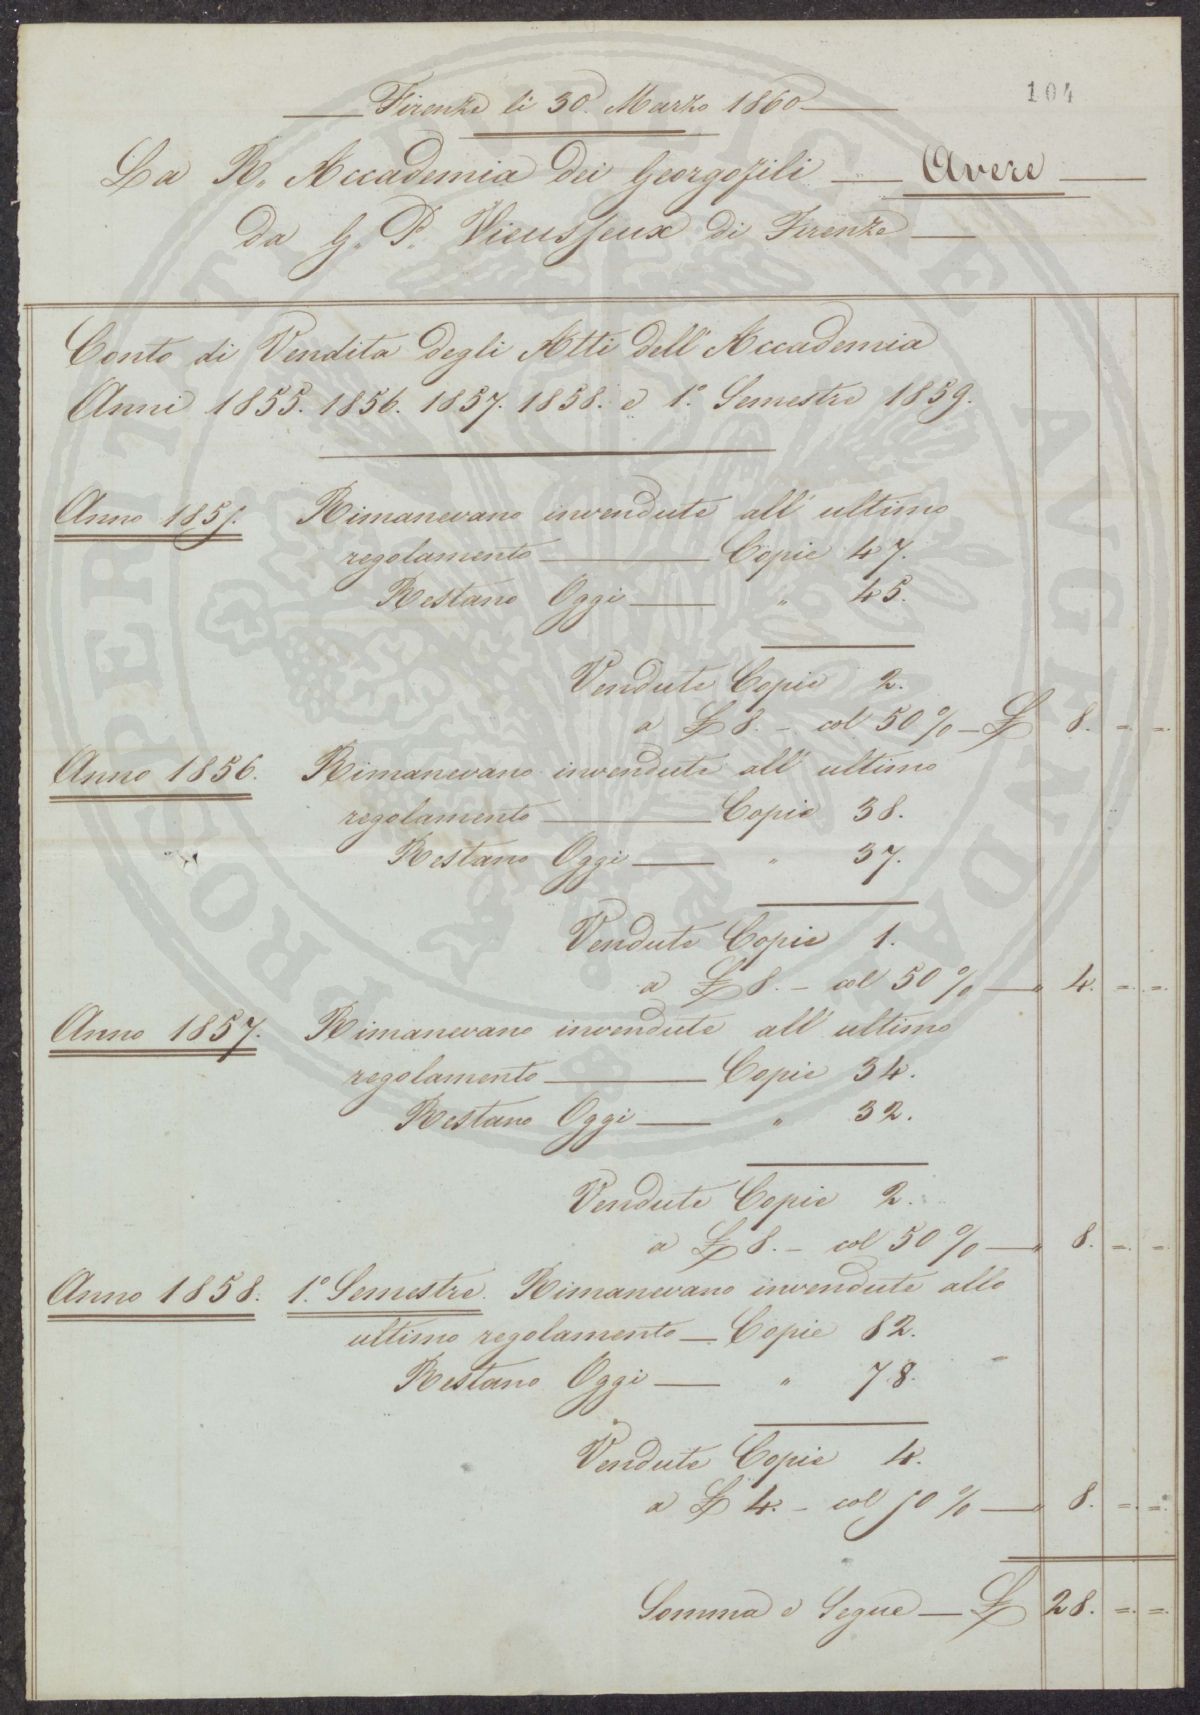 104
Firenze li 30. Marzo 1860
La R. Accademia dei Georgofili — Avere
da G. P. Vieusseux di Firenze
Conto di Vendita degli Atti dell'Accademia
Anni 1855. 1856. 1857. 1858. e 1° Semestre 1859.
Anno 1855. Rimanevano invendute all'ultimo
regolamento — Copie 47.
Restano Oggi — " 45.
Vendute Copie 2.
a £ 8. - col 50 % - £ 8. = =
Anno 1856. Rimanevano invendute all'ultimo
regolamento — Copie 38.
Restano Oggi — " 37.
Vendute Copie 1.
a £ 8. - col 50 % — " 4. = =
Anno 1857. Rimanevano invendute all'ultimo
regolamento — Copie 34.
Restano Oggi — " 32.
Vendute Copie 2.
a £ 8. - col 50 % — " 8. = =
Anno 1858. 1° Semestre. Rimanevano invendute allo
ultimo regolamento — Copie 82.
Restano Oggi — " 78.
Vendute Copie 4.
a £ 4. - col 50 % — " 8. = =
Somma e Segue — £ 28. = =
PROSPERITATI PUBLICAE AUGENDAE